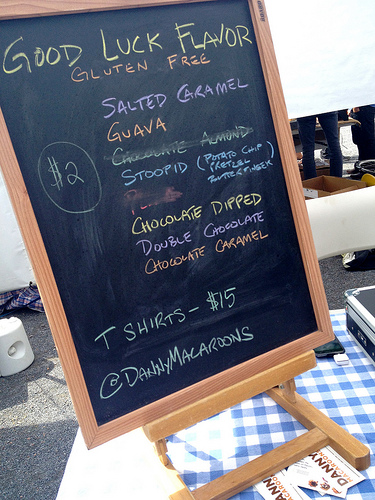 GOOD LUCK FLAVOR
GLUTEN FREE
SALTED CARAMEL
GUAVA
CHOCOLATE ALMOND
$2
STOOPID (POTATO CHIP
PRETZEL
BUTTERFINGER)
CHOCOLATE DIPPED
DOUBLE CHOCOLATE
CHOCOLATE CARAMEL
T SHIRTS - $15
@DANNYMACAROONS
DANNY